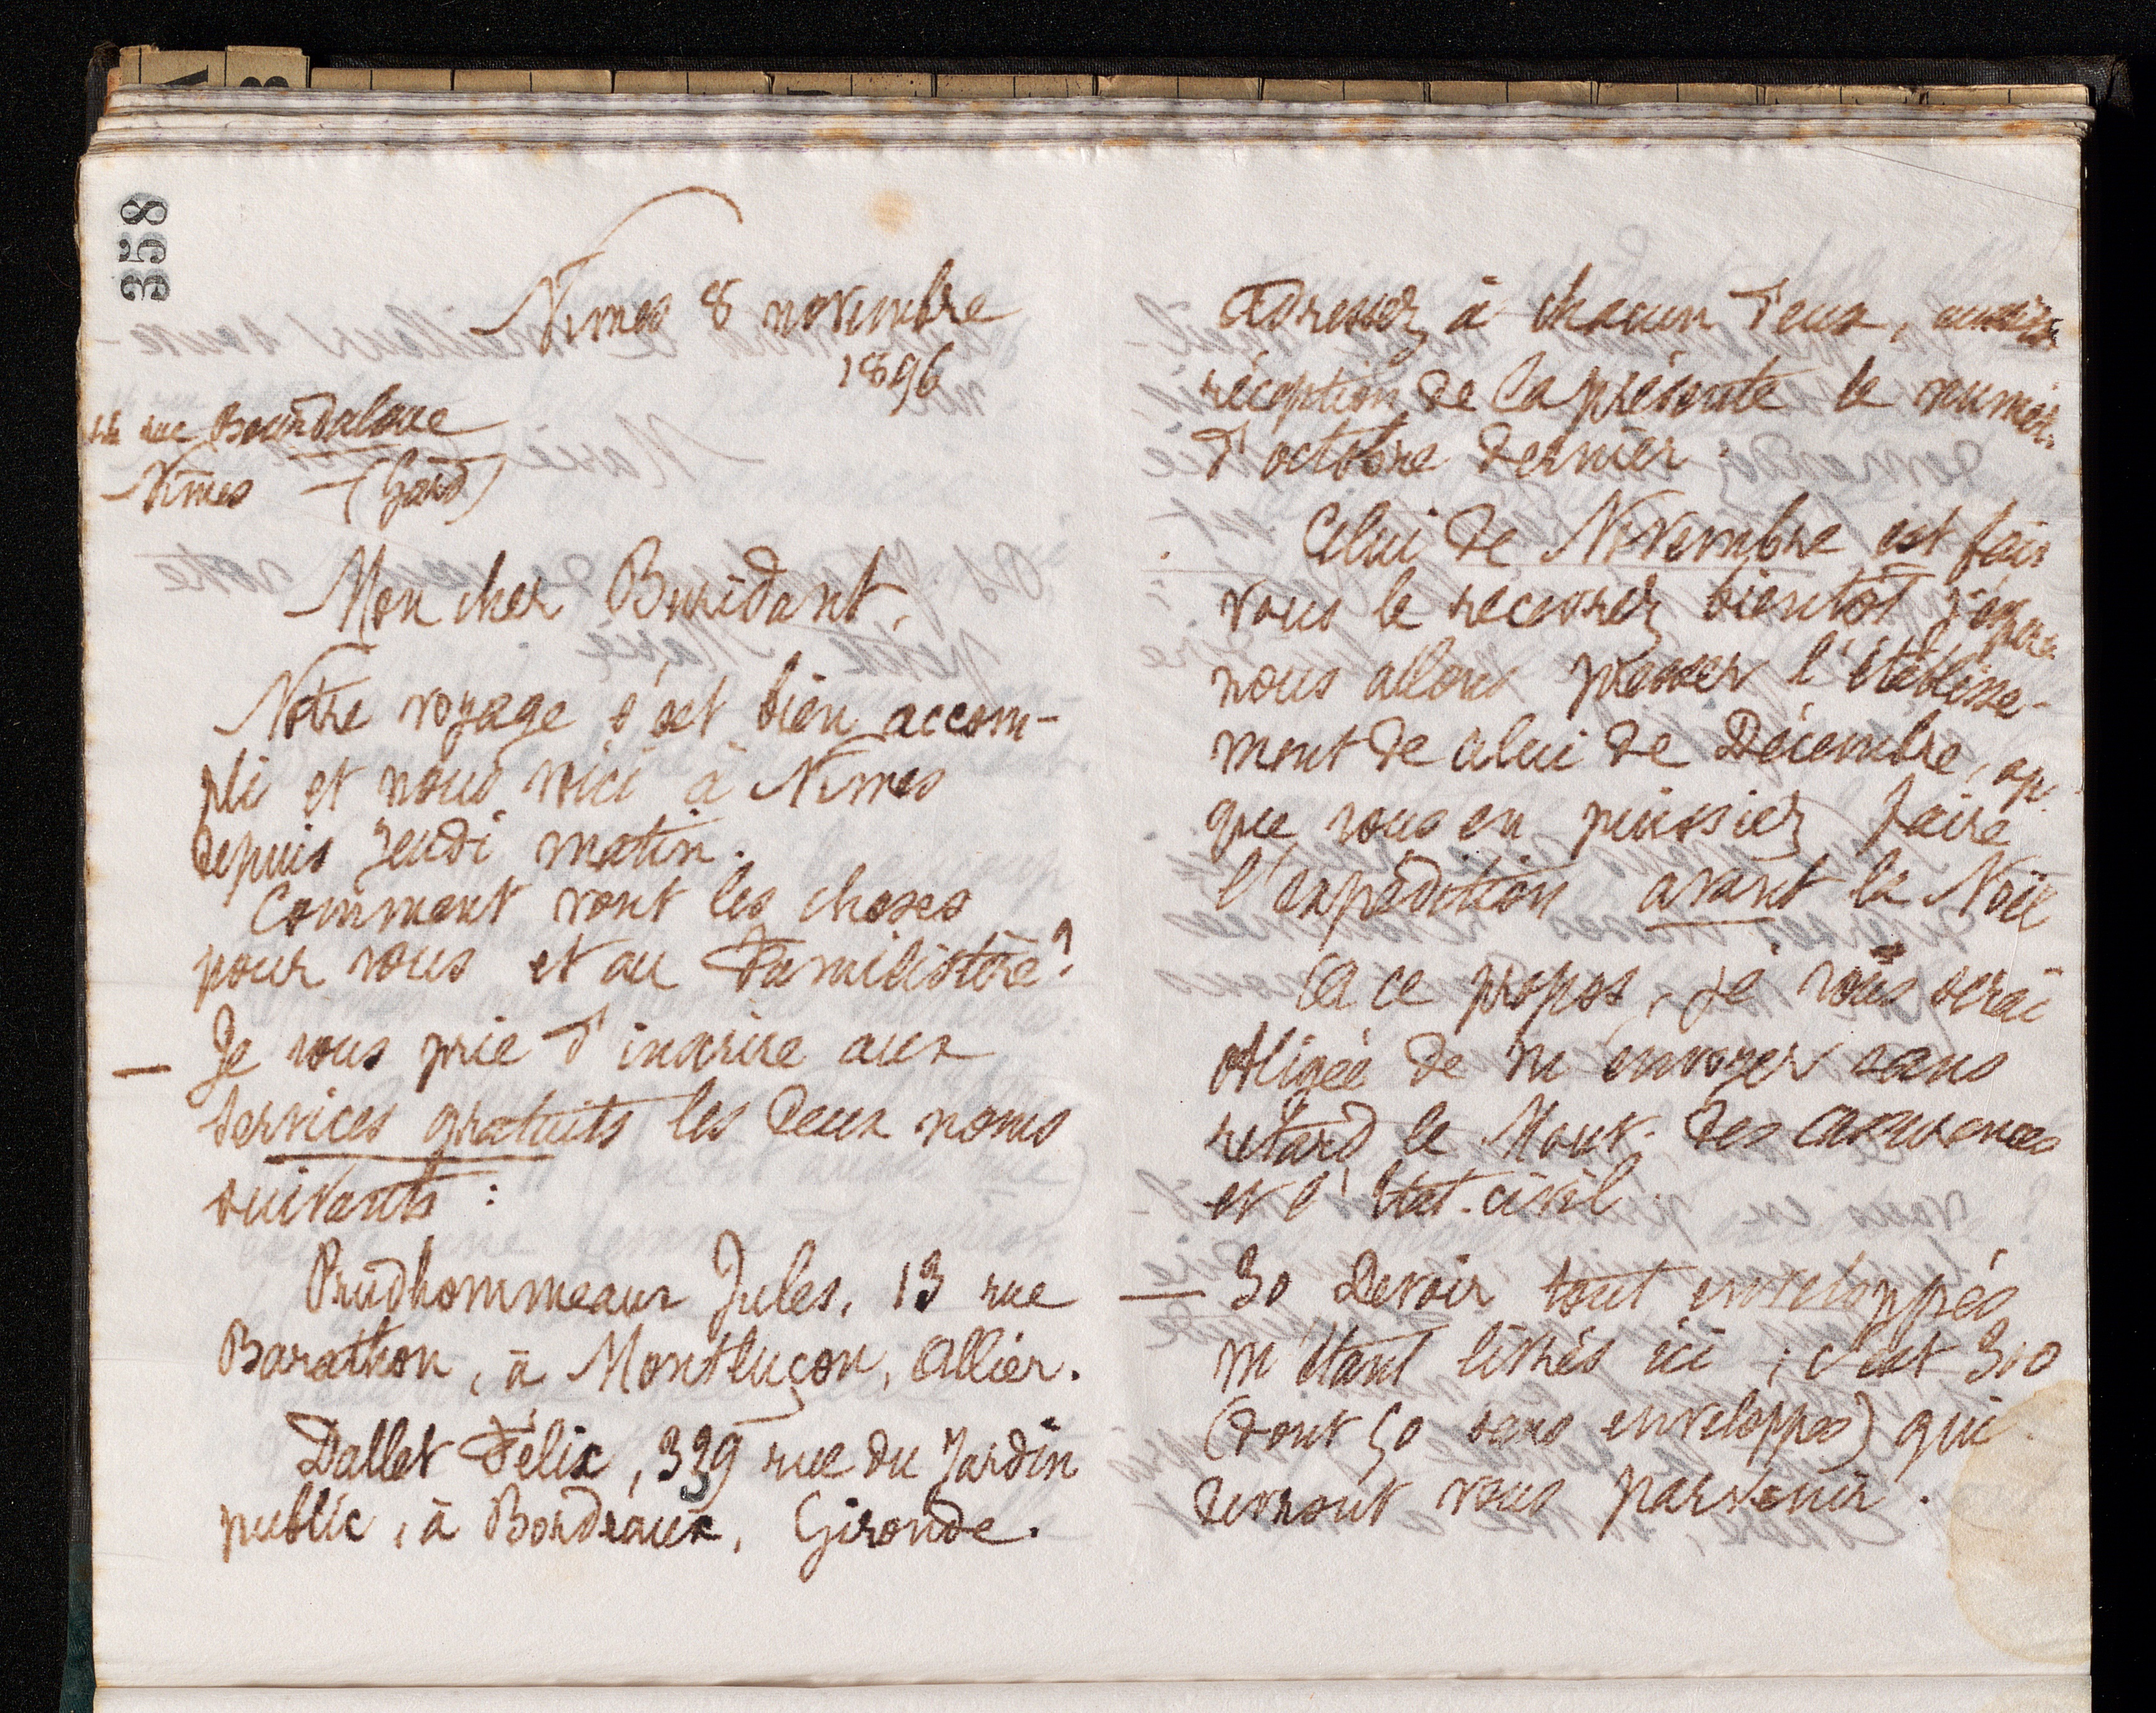 358
Nimes 8 novembre
1896
rue Bourdaloue
Nîmes (Gard)
Mon cher Buridant,
Notre voyage s'est bien accom-
pli et nous voici à Nimes
depuis Jeudi matin.
Comment vont les choses
pour vous et au Familistère?
— Je vous prie d'inscrire aux
services gratuits les deux noms
suivants :
Prudhommeaux Jules, 13 rue
Barathon, à Montluçon, Allier.
Dallet Félix, 339 rue du Jardin
public, à Bordeaux, Gironde.
Adressez à chacun d'eux,
réception de la présente le numér.
d'octobre dernier.
Celui de Novembre est fait
vous le recevrez bientôt j'espère
nous allons presser l'établisse-
ment de celui de Décembre,
que vous en puissiez faire
l'expédition avant la Noël
A ce propos, je vous serai
obligée de m'envoyer sans
retard le Mouv. des assurances
et l'Etat-civil.
— 30 Devoir tout enveloppés
m'étant livrés ici ; c'est 300
(dont 50 sans enveloppes) qui
devront vous parvenir.